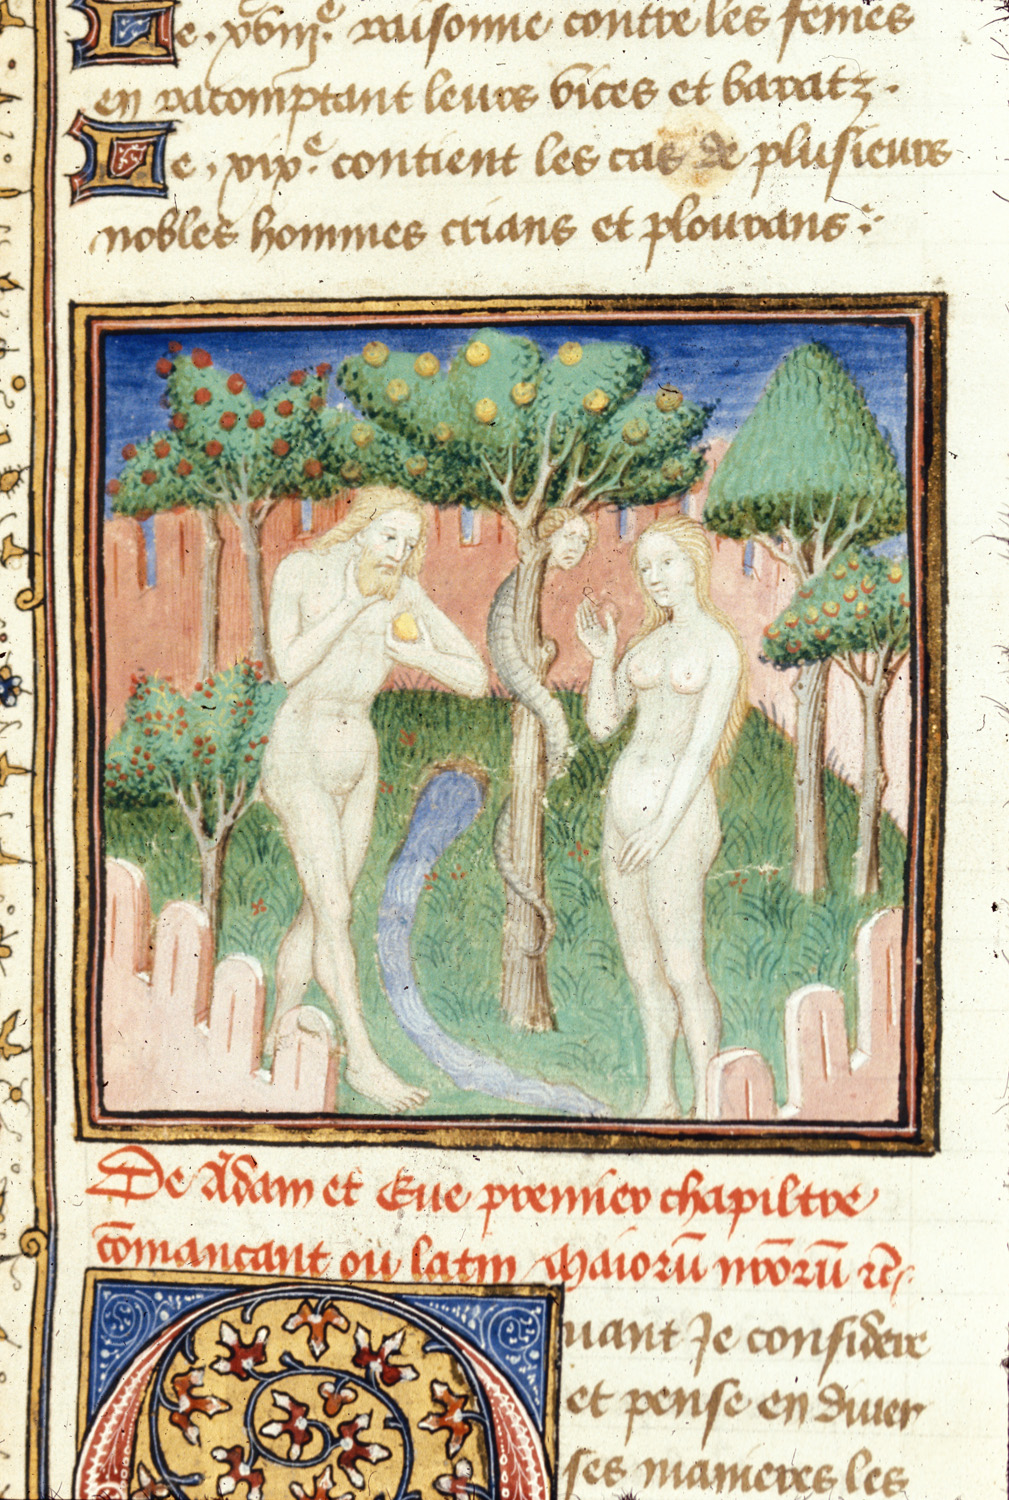 Le .xviii.e raisonne contre les femes
en racomptant leurs vices et baratz.
Le .xix.e contient les cas de plusieurs
nobles hommes crians et plourans :
De Adam et Eue premier chapiltre
comancant ou latin Maiorū nr̄orū rc̄.
Quant Je considere
et pense en diuer
ses manieres les